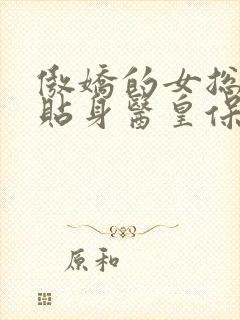 傲嬌的女总
貼身醫皇保
原和